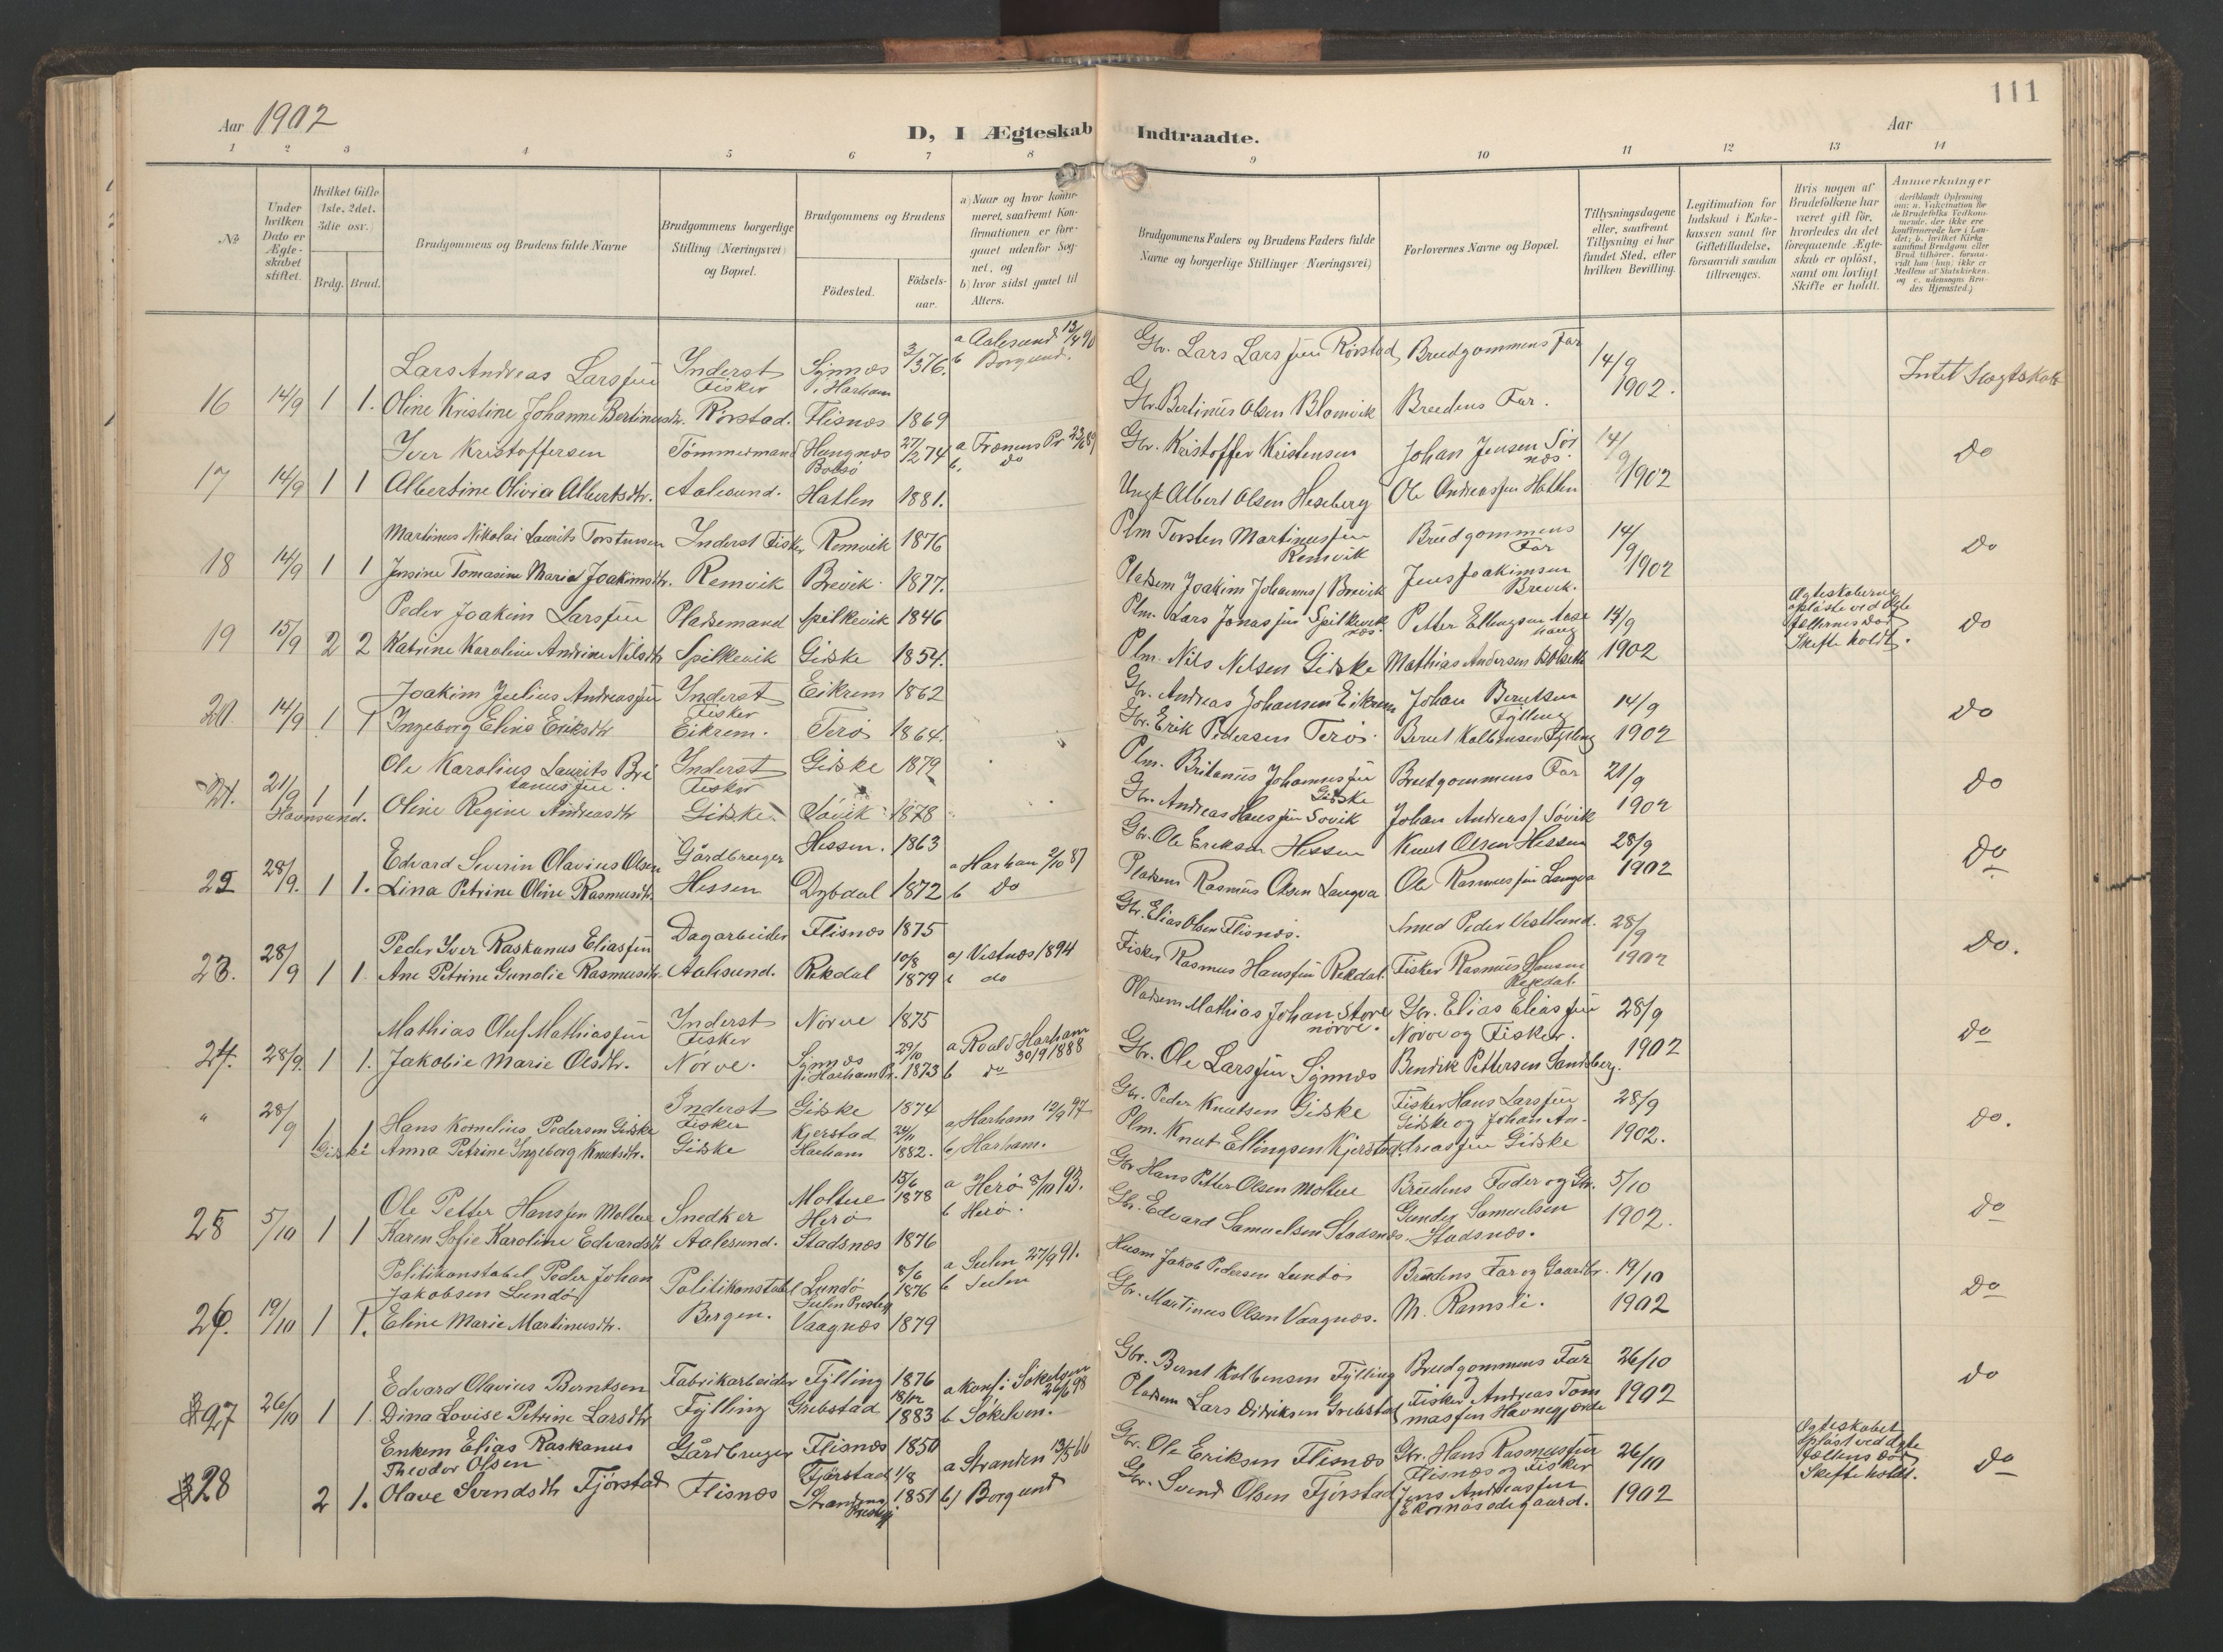 111
Aar 1902
D, I Ægteskab Indtraadte.
Aar
1 2 3 4 5 6 7 8 9 10 11 12 13 14
No
Under hvilken Dato er Ægteskabet stiftet.
Hvilket Gifte (1ste, 2det, 3die osv.)
Brdg. Brud.
Brudgommens og Brudens fulde Navne
Brudgommens borgerlige Stilling (Næringsvei) og Bopæl.
Brudgommens og Brudens
Födested.
Födsels-aar.
a) Naar og hvor konfirmeret, saafremt Konfirmationen er foregaaet udenfor Sognet, og
b) hvor sidst gaaet til Alters.
Brudgommens Faders og Brudens Faders fulde Navne og borgerlige Stillinger (Næringsvei)
Forlovernes Navne og Bopæl.
Tillysningsdagene eller, saafremt Tillysning ei har fundet Sted, efter hvilken Bevilling.
Legitimation for Indskud i Enkekassen samt for Giftetilladelse, forsaavidt saadan tiltrænges.
Hvis nogen af Brudefolkene har været gift för, hvorledes da det foregaaende Ægteskab er oplöst, samt om lovligt Skifte er holdt.
Anmerkninger
16 14/9 1 1.
Lars Andreas Larsen
Oline Kristine Johanne Bertinusdtr.
Inderst Fisker Rörstad.
Synnes i Harham 3/3 76.
Flisnæs 1869
a Aalesund 13/4 90
b Borgund.
Gbr. Lars Larsen Rörstad
Gbr. Bertinus Olsen Blomvik
Brudgommens Far
Brudens Far.
14/9 1902.
Intet Slægtskab
17 14/9 1 1
Iver Kristoffersen
Albertine Olivia Albertsdtr.
Tömmermand Aalesund.
Hungnes Bolsö 27/2 74
Hatlen 1881.
a Frænens Pr. 23/6 89
b. do
Gbr. Kristoffer Kristensen
Ungk Albert Olsen Heseberg
Johan Jensen Sörnes.
Ole Andreassen Hatlen
14/9 1902
do
18 14/9 1 1
Martinus Nikolai Laurits Torstensen
Jensine Tomasine Maria Joakimsdtr.
Inderst Fisker Remvik
Remvik 1876
Brevik 1877.
Plm Torsten Martinussen Remvik
Pladsem Joakim Johannes/ Brevik
Brudgommens Far
Jens Joakimsen Brevik.
14/9 1902
do
19 15/9 2 2
Peder Joakim Larsen
Katrine Karoline Andrine Nilsdtr
Pladsemand Spilkevik
Spilkevik 1846
Gidske 1854.
Plm. Lars Jonassen Spilkevik
Plm. Nils Nilsen Gidske
Petter Ellingsen Aasehaug
Mathias Andersen
14/9 1902
Ægteskaberne oplöste ved Ægtefællernes Död Skifte holdt.
do
20 14/9 1 1
Joakim Julius Andreassen
Ingeborg Elina Eriksdtr
Inderst Fisker Eikrem.
Eikrem 1862
Terö 1864.
Gbr. Andreas Johansen Eikrem
Gbr. Erik Pedersen Terö.
Johan Berntsen Fylling
Bernt Kolbensen Fylling
14/9 1902
do
21. 21/9 1 1
Havnsund.
Ole Karolius Laurits Britanussen.
Oline Regine Andreasdtr
Inderst Fisker Gidske.
Gidske 1879
Sövik 1878
Plm. Britanus Johannessen Gidske
Gbr. Andreas Hanssen Sövik
Brudgommens Far
Johan Andreas/ Sövik
21/9 1902
do
22 28/9. 1 1.
Edvard Severin Olavius Olsen
Lina Petrine Oline Rasmusdtr.
Gårdbruger Hessen
Hessen. 1863
Dybdal 1872
a Harham 2/10 87
b do
Gbr. Ole Eriksen Hessen
Pladsem Rasmus Olsen Langva
Knut Olsen Hessen
Ole Rasmussen Langva
28/9 1902
do
23. 28/9 1 1
Peder Iver Raskanus Eliassen
Ane Petrine Gunelie Rasmusdtr.
Dagarbeider Aalesund.
Flisnæs 1875
Rekdal 10/8 1879
a) Vestnæs 1894
b do
Gbr. Elias Olsen Flisnæs.
Fisker Rasmus Hanssen Rekdal
Smed Peder Vestlund.
Fisker Rasmus Hansen Rekdal.
28/9 1902
do.
24. 28/9. 1 1.
Mathias Oluf Mathiassen
Jakobie Marie Olsdtr.
Inderst Fisker Nörve.
Nörve 1875
Synnes i Harham Pr. 29/10 1873
a Roald Harham 30/9 1888
b do
Pladsem Mathias Johan. Store nörve.
Gbr. Ole Larsen Synnes
Gbr. Elias Eliassen Nörve og Fisker.
Bendik Pettersen Sandsberg.
28/9 1902
do
" 28/9 1 1
Gidske
Hans Kornelius Pedersen Gidske
Anna Petrine Ingeborg Knutsdtr.
Inderst Fisker Gidske
Gidske 1874
Kjerstad Harham 24/11 1882.
a) Harham 12/9 97
b) Harham.
Gbr. Peder Knutsen Gidske
Plm. Knut Ellingsen Kjerstad
Fisker Hans Larsen Gidske og Johan Andreassen Gidske
28/9 1902.
do.
25 5/10 1 1
Ole Petter Hanssen Moltue
Karen Sofie Karoline Edvardsdtr
Snedker Aalesund.
Moltue Herö 15/6 1878
Stadsnes 1876
a Herö 8/10 93.
b Herö.
Gbr Hans Petter Olsen Moltue
Gbr. Edvard Samuelsen Stadsnes.
Brudens Fader og Gbr. Gunder Samuelsen Stadsnes.
5/10 1902.
do
26. 19/10 1 1.
Politikonstabel Peder Johan Jakobsen Lundö
Eline Marie Martinusdtr.
Politikonstabel Bergen.
Lundö Sulen Prestegj 8/6 1876
Vaagnes 1879
a Sulen 27/9 91.
b Sulen
Husm Jakob Pedersen Lundö
Gbr. Martinus Olsen Vaagnes.
Brudens Far og Gaardbr. M. Ramsli.
19/10 1902
do
27 26/10 1 1
Edvard Olavius Berntsen
Dina Lovise Petrine Larsdtr
Fabrikarbeider Fylling
Fylling 1876
Grebstad 18/12 1883
a konf. i Sökelven 26/6 98
b Sökelven.
Gbr. Bernt Kolbensen Fylling
Pladsem Lars Didriksen Grebstad
Brudgommens Far og Fisker Andreas Tommassen Havnegjerde
26/10 1902
do
28 2 1.
Enkem Elias Raskanus Theodor Olsen
Olave Svendsdtr Fjörstad
Gårdbruger Flisnæs
Flisnæs 1850
Fjörstad Strandens Prestegj 1/8 1851
a Stranden 13/5 66
b) Borgund
Gbr. Ole Eriksen Flisnæs
Gbr. Svend Olsen Fjörstad
Gbr. Hans Rasmussen Flisnæs og Fisker Jens Andreassen Ekornæsödegaard.
26/10 1902
Ægteskabet oplöst ved Ægtefællens Död Skifte holdt.
do